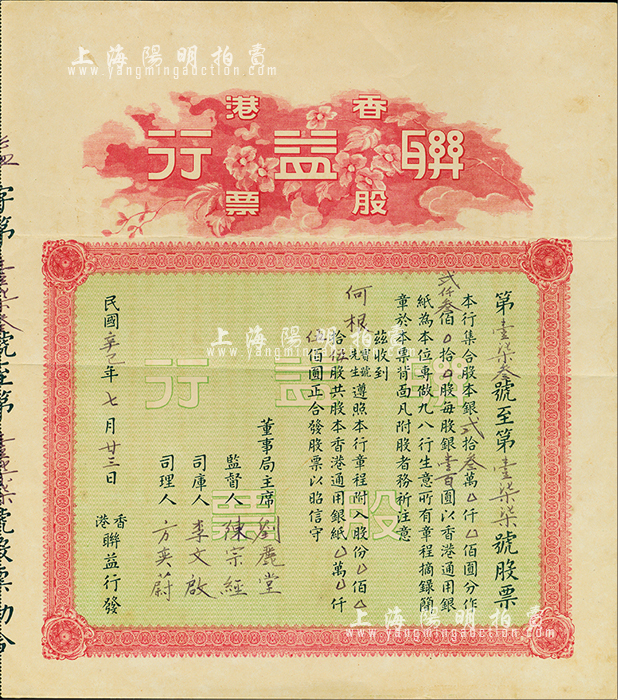 上海陽明拍賣
www.yangmingauction.com
香港
聯益行
股票
第壹柒叁號至第壹柒柒號股票
本行集合股本銀弍拾叁萬〇仟〇佰圓分作
弍仟叁佰〇拾〇股每股銀壹百圓以香港通用銀
紙為本位專做九八行生意所有章程摘錄簡
章於本票背面凡附股者務祈注意
茲收到
何根寶號先生遵照本行章程附入股份〇佰〇
拾伍股共股本香港通用銀紙〇萬〇仟
伍佰圓正合發股票以昭信守
董事局主席 劉麗堂
監督人 練宗經
司庫人 李文啟
司理人 方奕蔚
民國辛巳年七月廿三日
香港聯益行發
聯益行
股票
上海陽明拍賣
www.yangmingauction.com
字第壹柒叁號至第壹柒柒號股票
上海陽明拍賣
www.yangmingauction.com